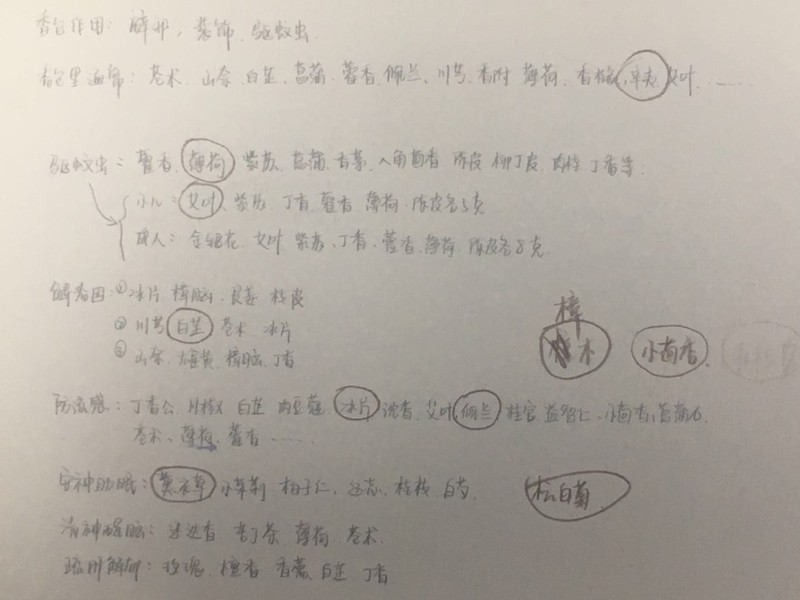 香包作用: 辟邪, 装饰、驱蚊虫.
香包里面常: 苍术、山奈、白芷、菖蒲、藿香、佩兰、川芎、香附 薄荷、香橼、辛夷、艾叶......
驱蚊虫: 藿香、薄荷、紫苏、菖蒲、香茅、八角茴香 陈皮 柳丁皮 肉桂 丁香等.
小儿: 艾叶、紫苏 丁香 藿香 薄荷、陈皮各5克
成人: 金银花、艾叶 紫苏、丁香、藿香、薄荷、陈皮各8克.
解暑困: ①冰片 樟脑 良姜 桂皮
②川芎 白芷 苍术 冰片
③山奈 雄黄 樟脑 丁香
樟
木 小茴香.
防流感: 丁香 川椒 白芷 肉豆蔻、冰片 沈香、艾叶 佩兰 桂 益智仁、小茴香
苍术、薄荷、藿香......
安神助眠: 薰衣草 小茉莉 柏子仁、远志、桂枝 白芍. 松白菊
清神醒脑: 迷迭香 苦丁茶 薄荷 苍术.
疏肝解郁: 玫瑰、檀香 香薷、白芷 丁香